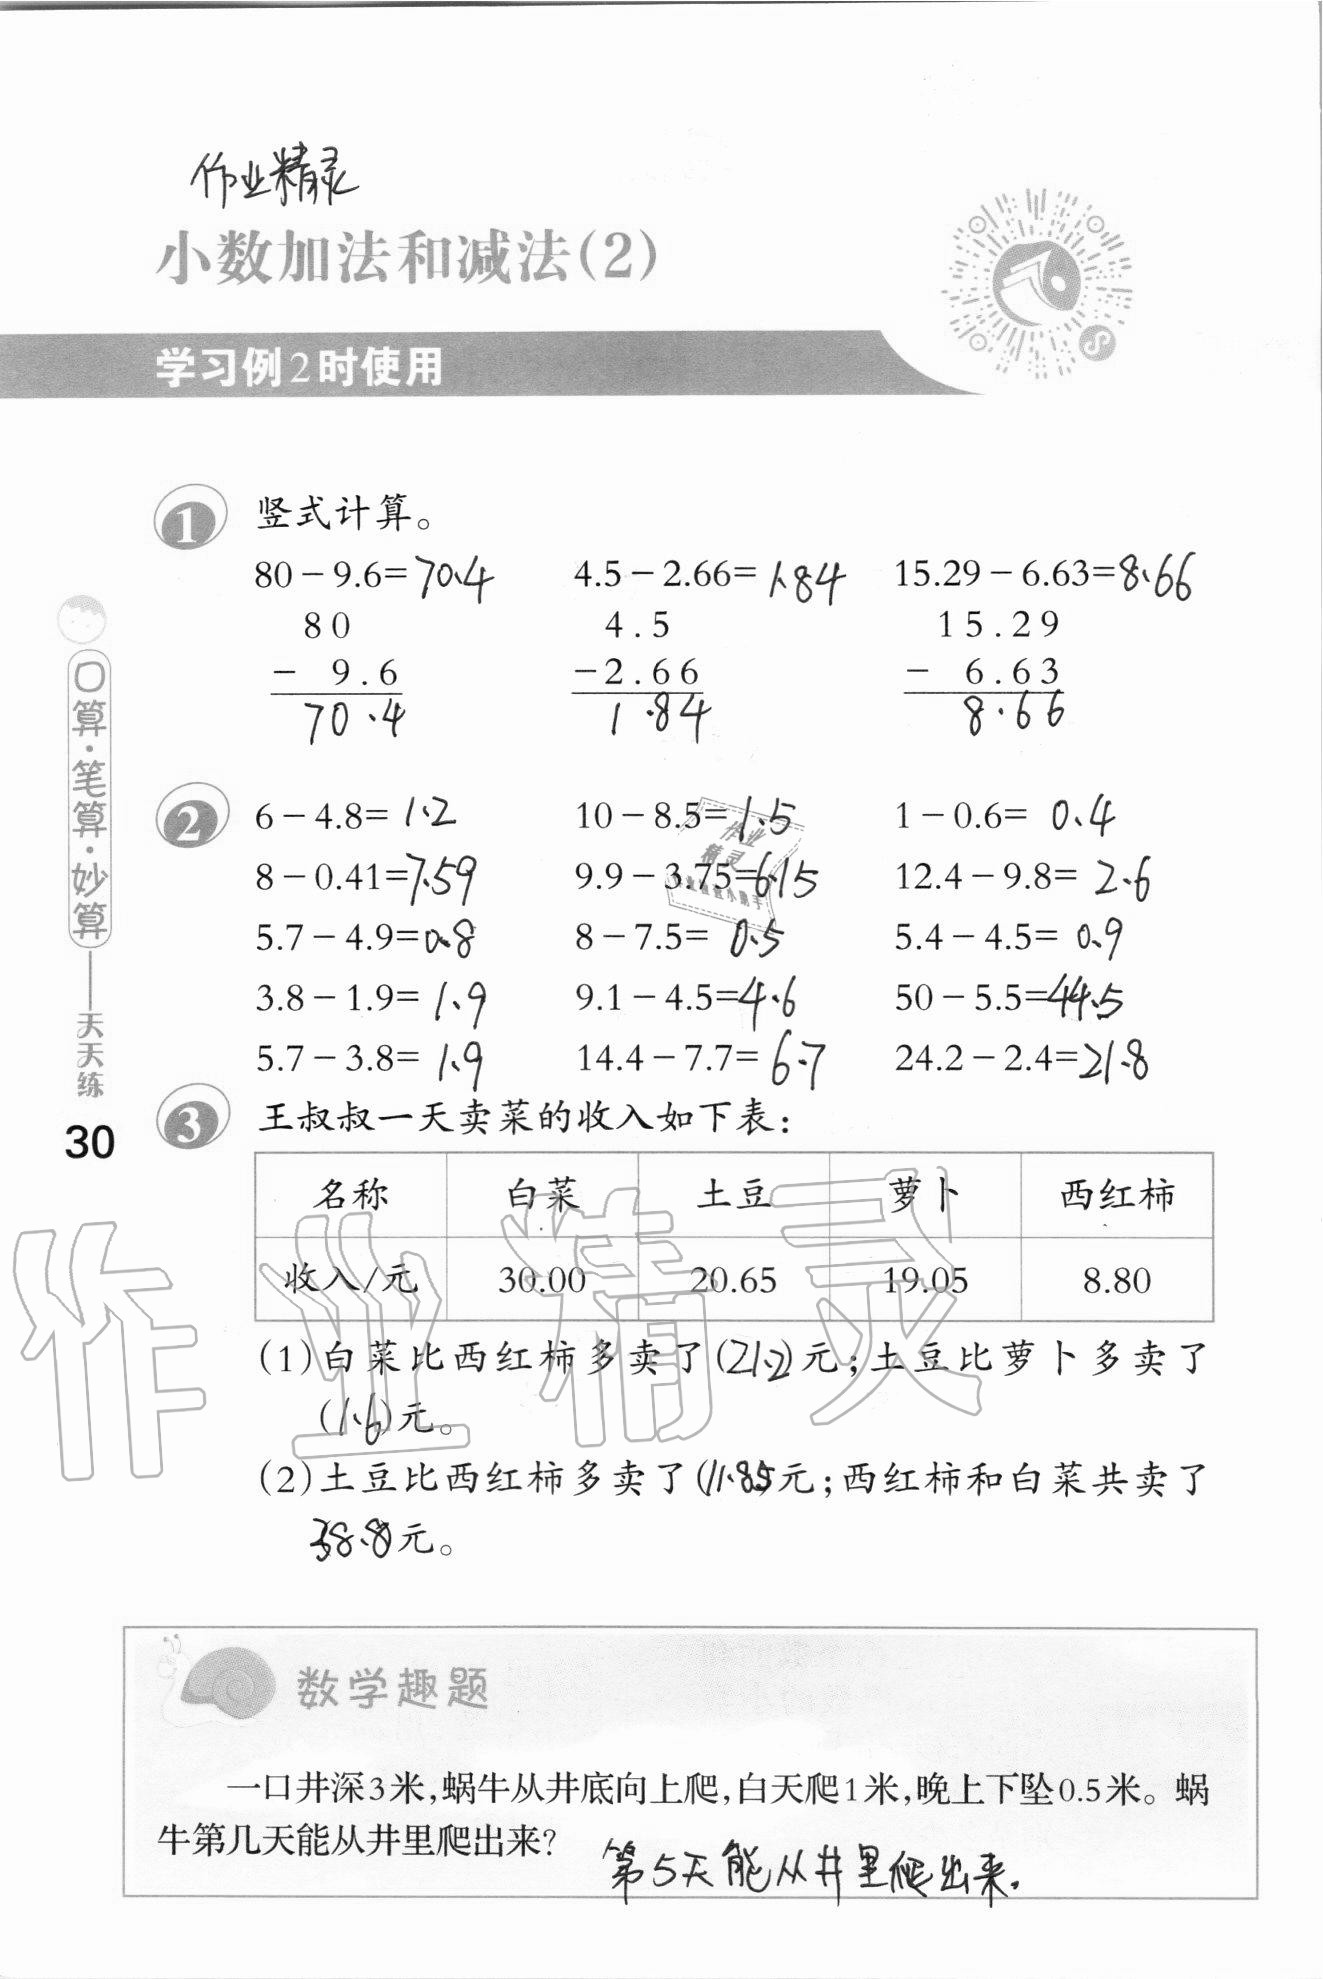 作业精灵
小数加法和减法(2)
学习例2时使用
1 竖式计算。
80-9.6=70.4 4.5-2.66=1.84 15.29-6.63=8.66
80 4.5 15.29
- 9.6 -2.66 - 6.63
70.4 1.84 8.66
2 6-4.8=1.2 10-8.5=1.5 1-0.6=0.4
8-0.41=7.59 9.9-3.75=6.15 12.4-9.8=2.6
5.7-4.9=0.8 8-7.5=0.5 5.4-4.5=0.9
3.8-1.9=1.9 9.1-4.5=4.6 50-5.5=44.5
5.7-3.8=1.9 14.4-7.7=6.7 24.2-2.4=21.8
3 王叔叔一天卖菜的收入如下表：
名称 白菜 土豆 萝卜 西红柿
收入/元 30.00 20.65 19.05 8.80
(1)白菜比西红柿多卖了(21.2)元；土豆比萝卜多卖了
(1.6)元。
(2)土豆比西红柿多卖了(11.85元；西红柿和白菜共卖了
38.8元。
数学趣题
一口井深3米,蜗牛从井底向上爬,白天爬1米,晚上下坠0.5米。蜗
牛第几天能从井里爬出来?
第5天能从井里爬出来.
口算·笔算·妙算——天天练
30
作业
精灵
作业精灵